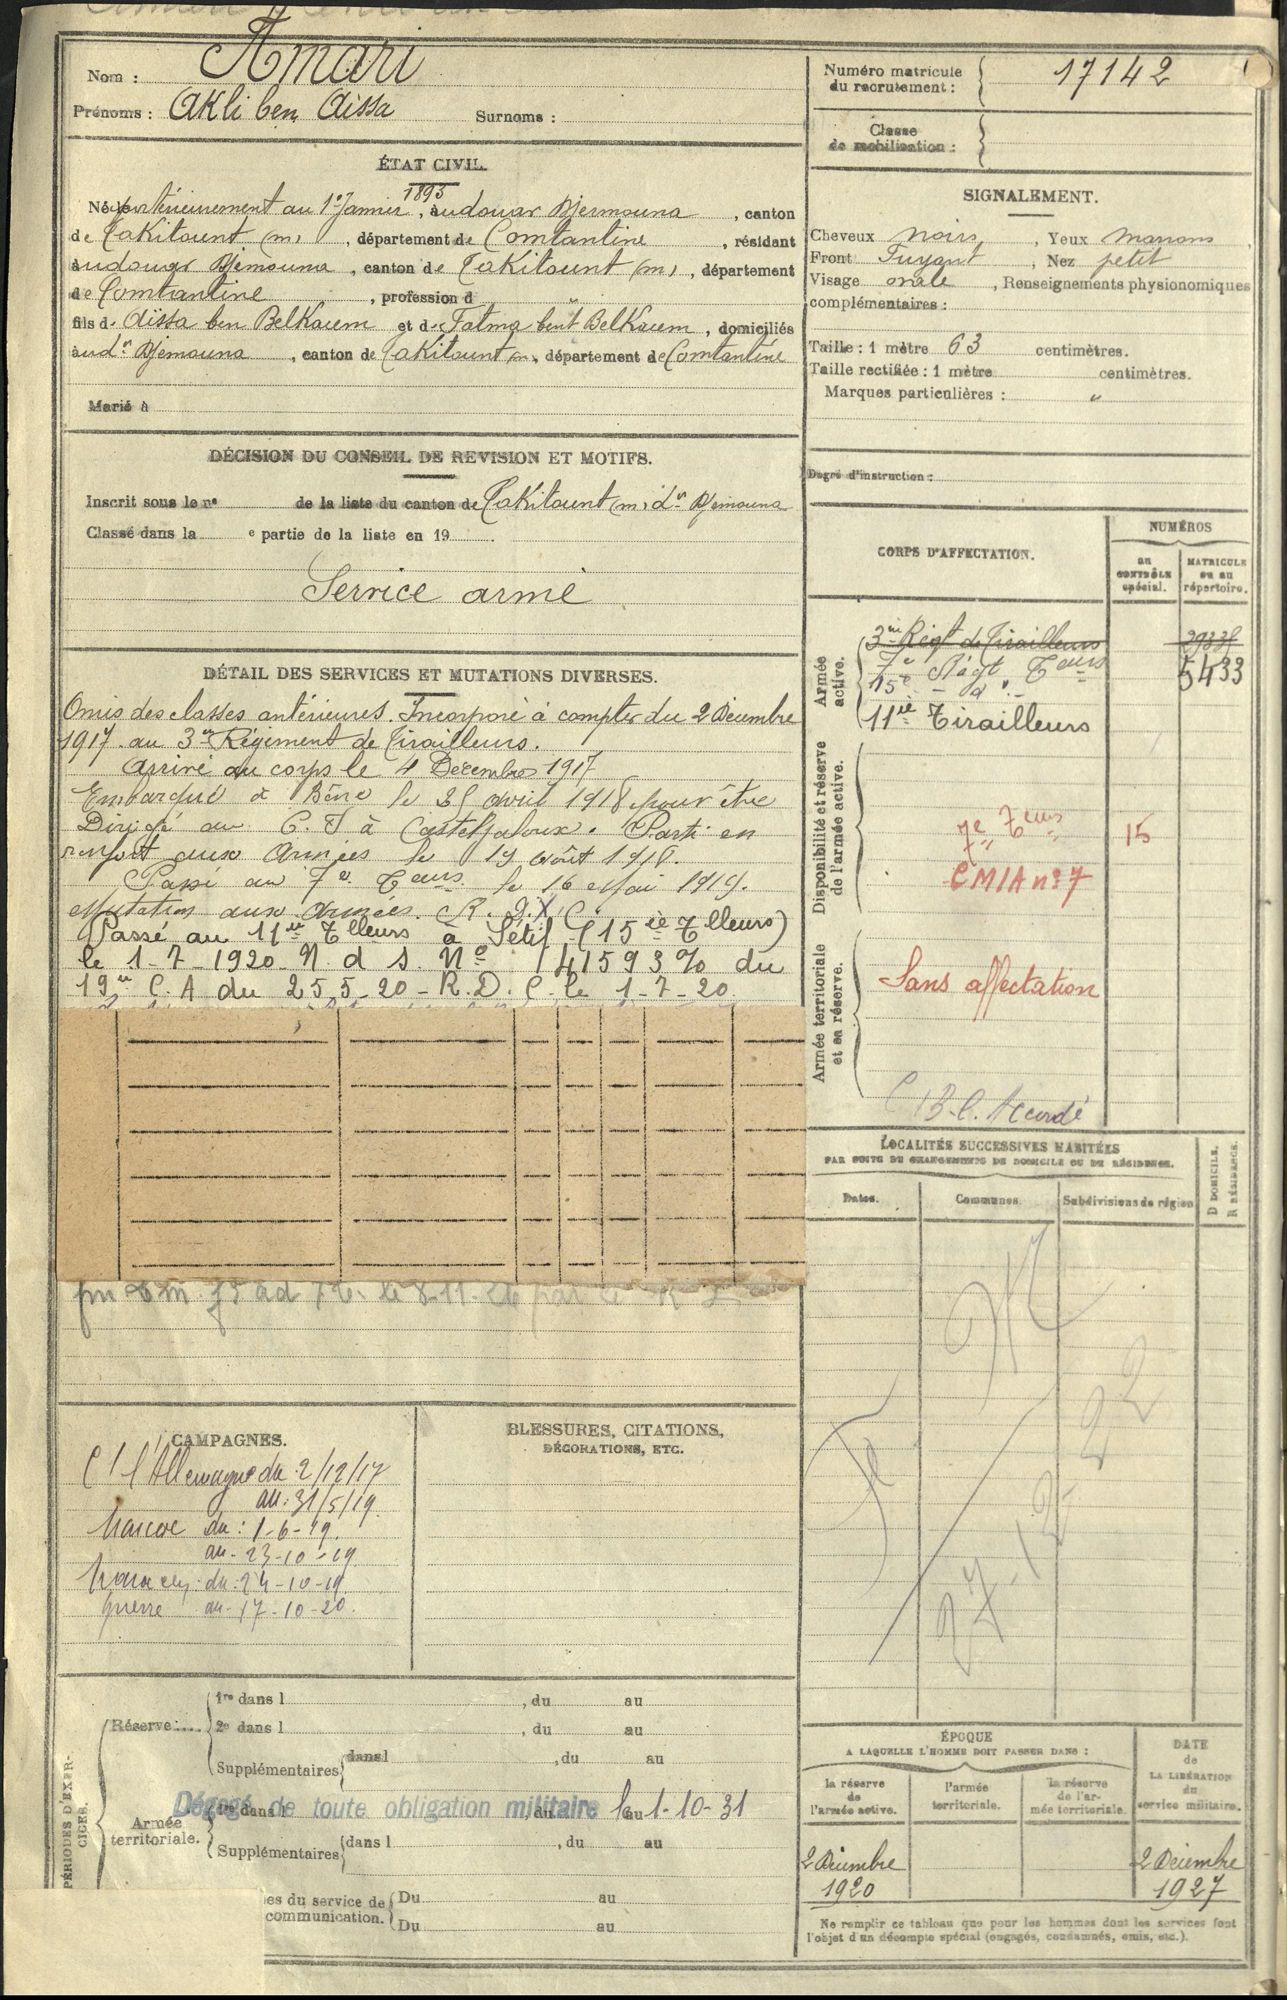 Nom : Amari
Prénoms : Akli ben Aissa Surnoms :
ÉTAT CIVIL.
1893
Né postérieurement au 1er Janvier, au douar Djermouna, canton
de Takitount (m), département de Constantine, résidant
au douar Djemouna, canton de Takitount (m), département
de Constantine, profession d
fils de Aissa ben Belkacem et de Fatma bent Belkacem, domiciliés
au dr Djemouna, canton de Takitount (m), département de Constantine
Marié à
DÉCISION DU CONSEIL DE REVISION ET MOTIFS.
Inscrit sous le n° de la liste du canton de Takitount (m) dr Djemouna
Classé dans la e partie de la liste en 19 .
Service armé
DÉTAIL DES SERVICES ET MUTATIONS DIVERSES.
Omis des classes antérieures. Incorporé à compter du 2 Décembre
1917 au 3me Régiment de Tirailleurs.
Arrivé au corps le 4 Décembre 1917
Embarqué à Bône le 25 avril 1918 pour être
Dirigé au C. I à Casteljaloux. Parti en
renfort aux Armées le 19 août 1918.
Passé au 7e Teurs le 16 Mai 1919.
Mutation aux Armées. R. D. X
Passé au 11ie Tlleurs à Sétif (15ie Tlleurs)
le 1-7-1920 N. d S. N° 41593 % du
19me C. A du 25 5-20 - R. D. C. le 1-7-20
CAMPAGNES.
C/ l'Allemagne du 2/12/17
au : 31/5/19.
Maroc du : 1-6-19.
au - 23-10-19
Maroc en du : 24-10-19
guerre au - 17-10-20.
BLESSURES, CITATIONS,
DÉCORATIONS, ETC.
PÉRIODES D'EXERCICES.
Réserve
1re dans l , du au
2e dans l , du au
Supplémentaires dans l , du au
Armée territoriale.
1re dans l du au
Dégagé de toute obligation militaire le 1-10-31
Supplémentaires dans l , du au
es du service de Du au
communication. Du au
Numéro matricule du recrutement : 17142
Classe de mobilisation :
SIGNALEMENT.
Cheveux noirs, Yeux marrons,
Front Fuyant, Nez petit
Visage ovale, Renseignements physionomiques
complémentaires :
Taille : 1 mètre 63 centimètres.
Taille rectifiée : 1 mètre centimètres.
Marques particulières : "
Degré d'instruction :
CORPS D'AFFECTATION.
NUMÉROS
au CONTRÔLE spécial.
MATRICULE ou au répertoire.
Armée active.
3me Régt de Tirailleurs
7e Régt Teurs 5433
15e - d° -
11ie Tirailleurs
Disponibilité et réserve de l'armée active.
7e Teurs 15
CMIA n° 7
Armée territoriale et sa réserve.
Sans affectation
C B. C. Accordé
LOCALITÉS SUCCESSIVES HABITÉES
PAR SUITE DE CHANGEMENTS DE DOMICILE OU DE RÉSIDENCE.
Dates. Communes. Subdivisions de région
D DOMICILE.
R RÉSIDENCE.
ÉPOQUE
A LAQUELLE L'HOMME DOIT PASSER DANS :
la réserve de l'armée active.
l'armée territoriale.
la réserve de l'armée territoriale.
DATE de LA LIBÉRATION du service militaire.
2 Décembre 1920
2 Décembre 1927
Ne remplir ce tableau que pour les hommes dont les services font
l'objet d'un décompte spécial (engagés, condamnés, omis, etc.).